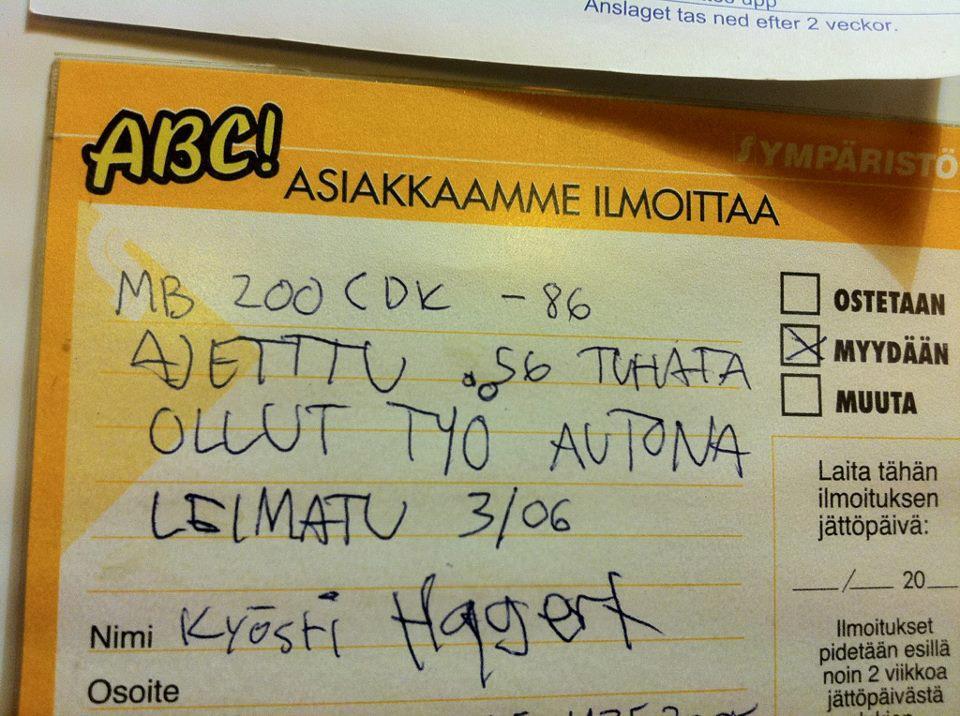 Anslaget tas ned efter 2 veckor.
ABC!
SYMPÄRISTÖ
ASIAKKAAMME ILMOITTAA
MB 200 CDK -86
AJETTTU 56 TUHATA
OLLUT TYÖ AUTONA
LEIMATU 3/06
OSTETAAN
MYYDÄÄN
MUUTA
Laita tähän
ilmoituksen
jättöpäivä:
___/___ 20__
Ilmoitukset
pidetään esillä
noin 2 viikkoa
jättöpäivästä
Nimi Kyösti Hagert
Osoite